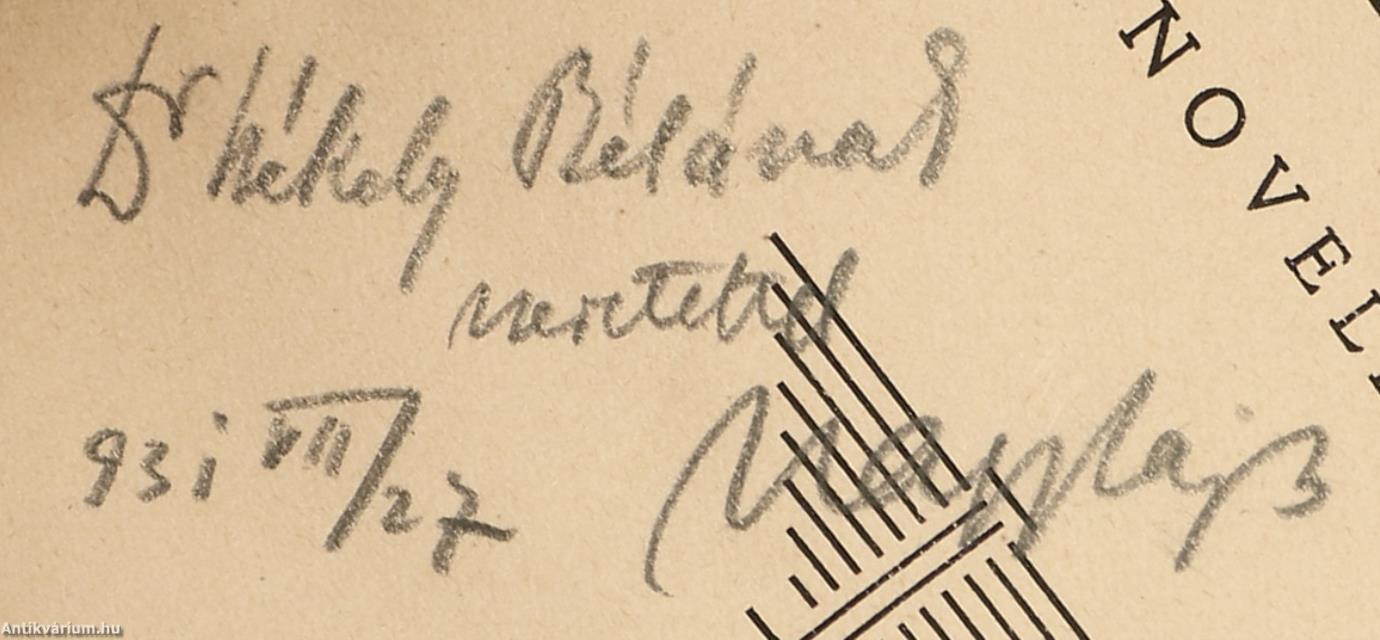 Dr Székely Bélának
szeretettel
931 VII/27
Nagy Lajos
NOVEL
Antikvárium.hu